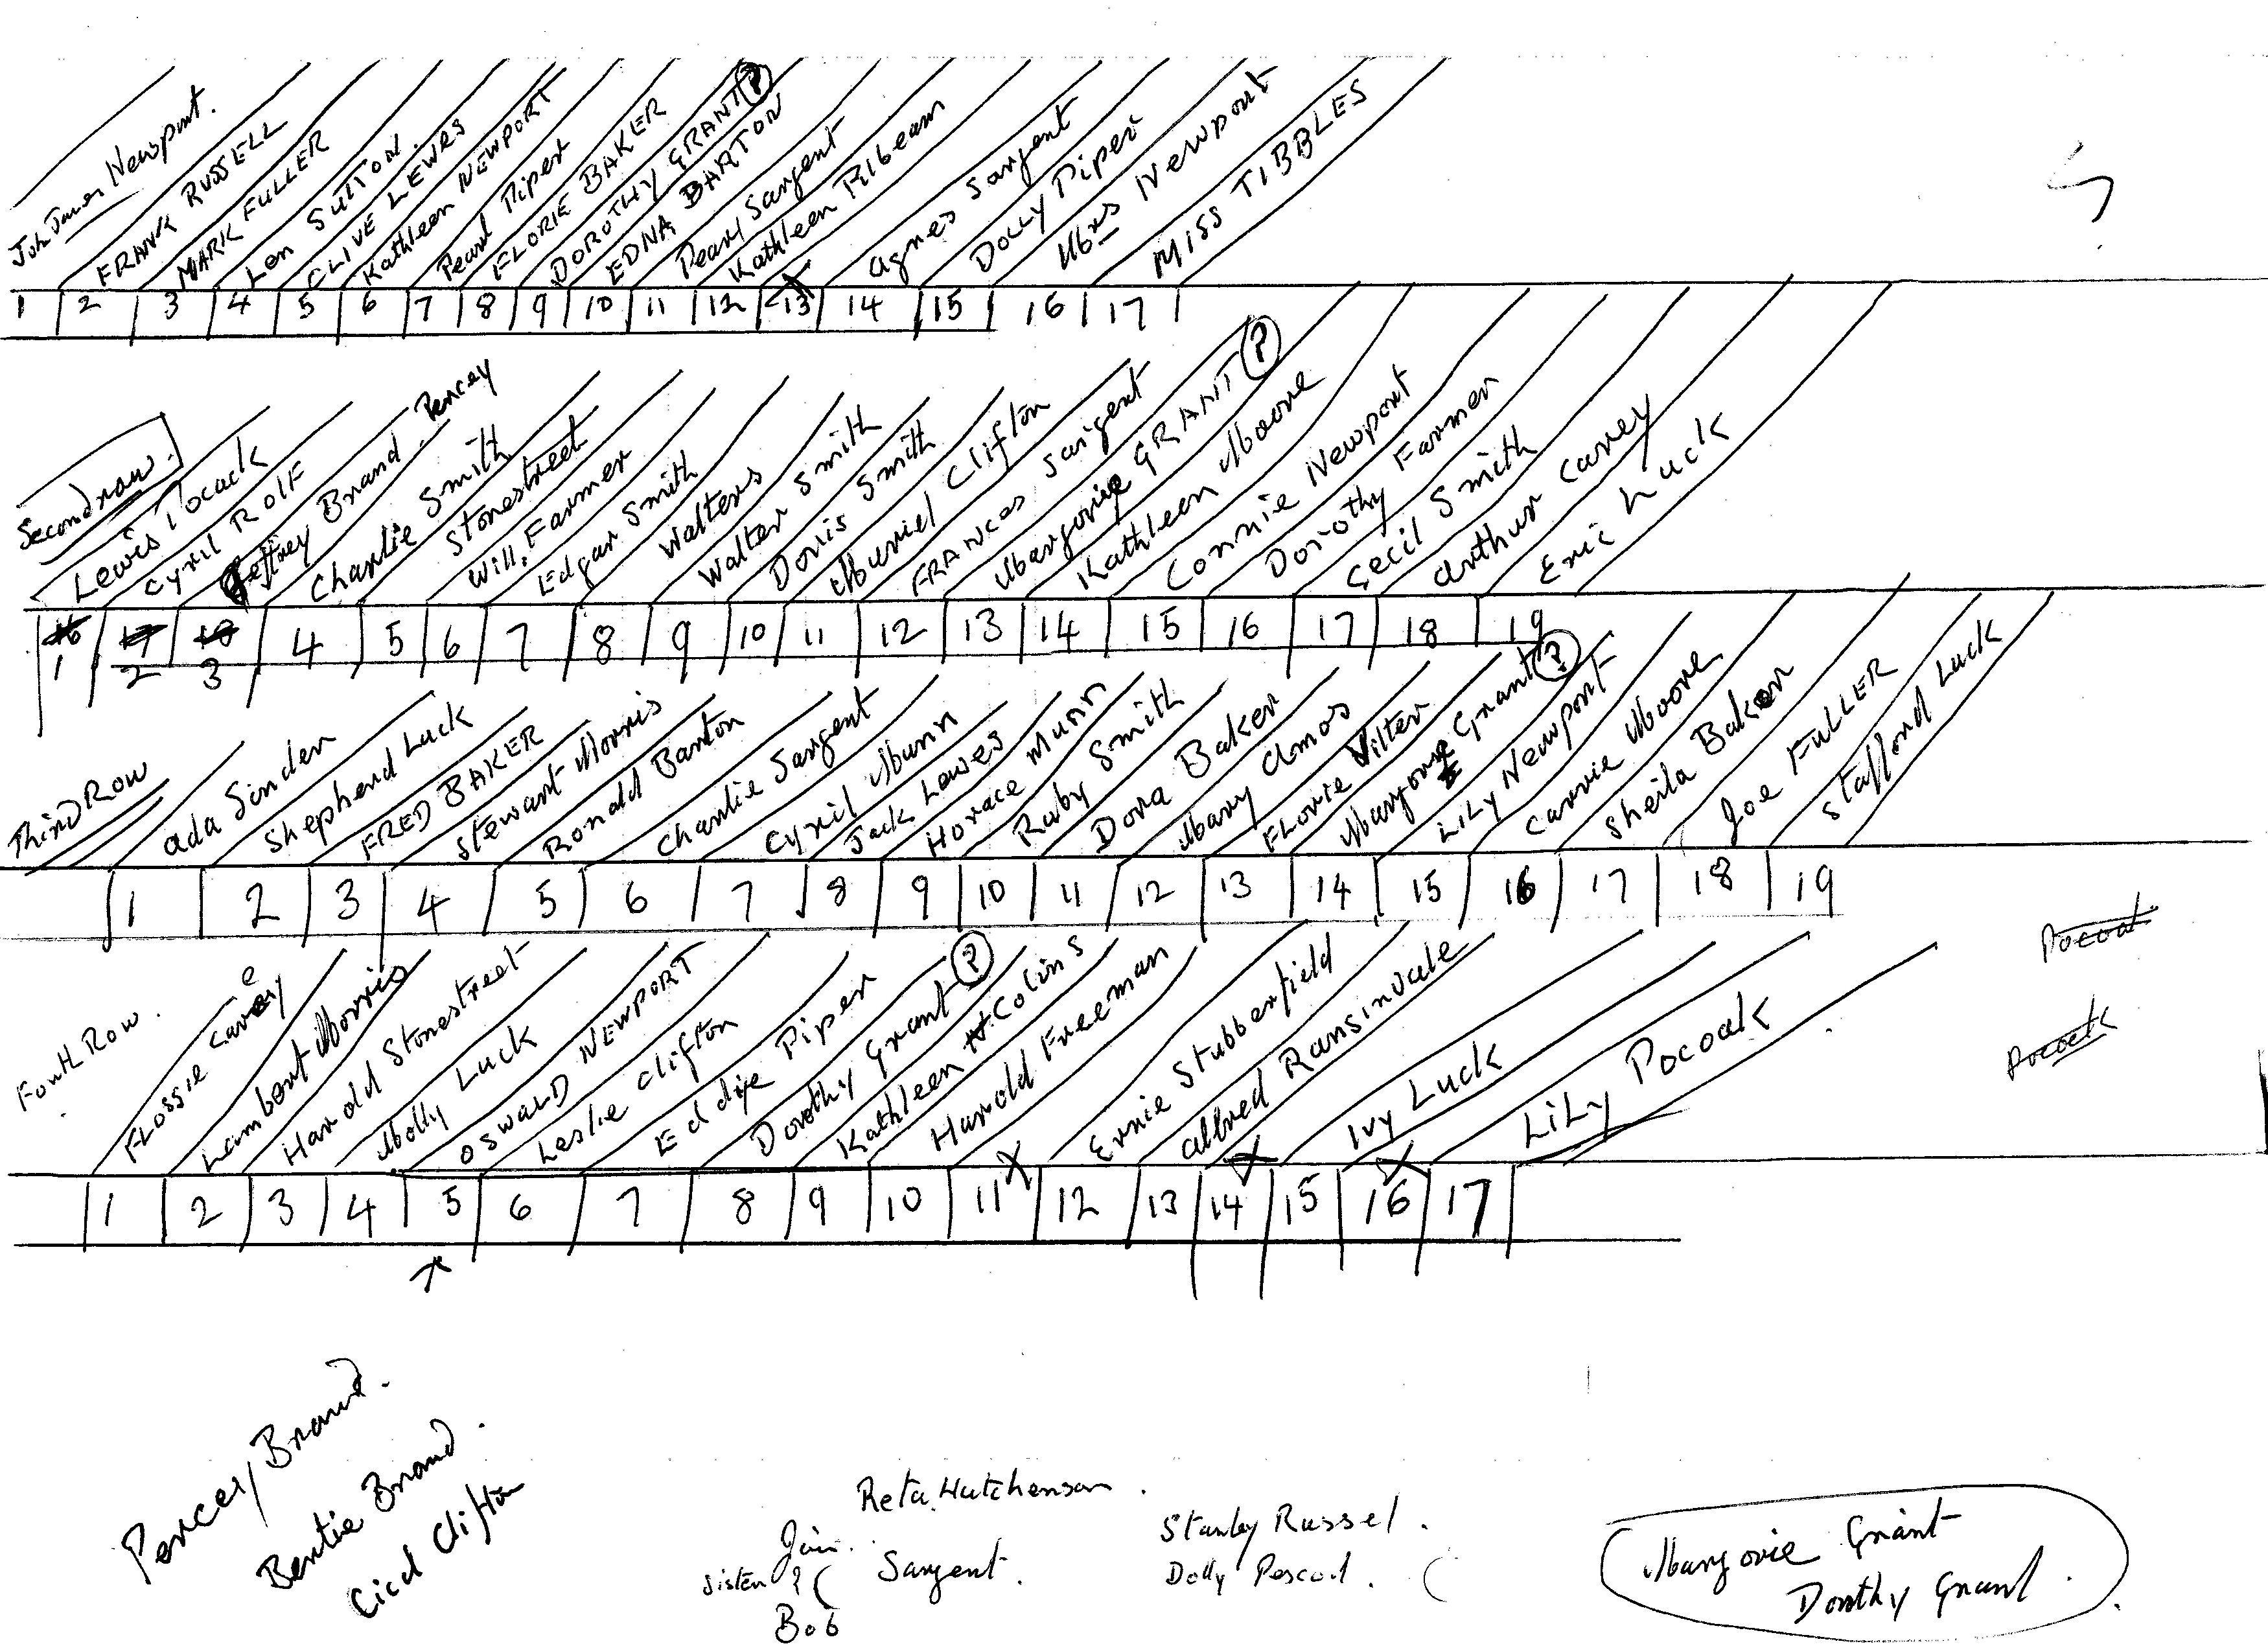 Joh James Newport.
FRANK RUSSELL
MARK FULLER
Len SUTTON.
CLIVE LEWRS
Kathleen NEWPORT
Pearl Piper
FLORIE BAKER
DOROTHY GRANT ?
EDNA BARTON
Pearl Sargent
Kathleen Ribeam
Agnes Sargent
DOLLY Piper
Mrs Newport
MISS TIBBLES
1 2 3 4 5 6 7 8 9 10 11 12 13 14 15 16 17
Second row.
Lewis Pocock
Cyril ROLF
Jeffrey Brand. Percey
Charlie Smith
Stonestreet
Will, Farmer
Edgar Smith
Walters
Walter Smith
Doris Smith
Muriel Clifton
FRANCES Sargent
Margorie GRANT ?
Kathleen Moore
Connie Newport
Dorothy Farmer
Cecil Smith
Arthur Carey
Eric Luck
16 17 18 4 5 6 7 8 9 10 11 12 13 14 15 16 17 18 19
1 2 3
Third Row
Ada Sinden
Shepherd Luck
FRED BAKER
Stewart Morris
Ronald Barton
Charlie Sargent
Cyril Munn
Jack Lewes
Horace Munn
Ruby Smith
Dora Baker
Mary Amos
FLORIE Vilter
Margorie Grant ?
LiLy NEWPORT
Carrie Moore
Sheila Baker
Joe FULLER
Stafford Luck
1 2 3 4 5 6 7 8 9 10 11 12 13 14 15 16 17 18 19
Pocock
Pocock
Fouth Row.
FLOSSIE Carey
Lambert Morris
Harold Stonestreet
Molly Luck
OSWALD NEWPORT
Leslie Clifton
Eddie Piper
Dorothy Grant ?
Kathleen Colins
Harold Freeman
Ernie Stubberfield
Alfred Ransinvale
Ivy Luck
LiLy Pocock
1 2 3 4 5 6 7 8 9 10 11 X 12 13 14 15 16 17
Percey Brand.
Bertie Brand.
Cicel Clifton
Reta Hutchenson.
Sister ?
Bob
Sargent.
Stanley Russel.
Dolly Pescod.
Margorie Grant
Dorothy Grant.